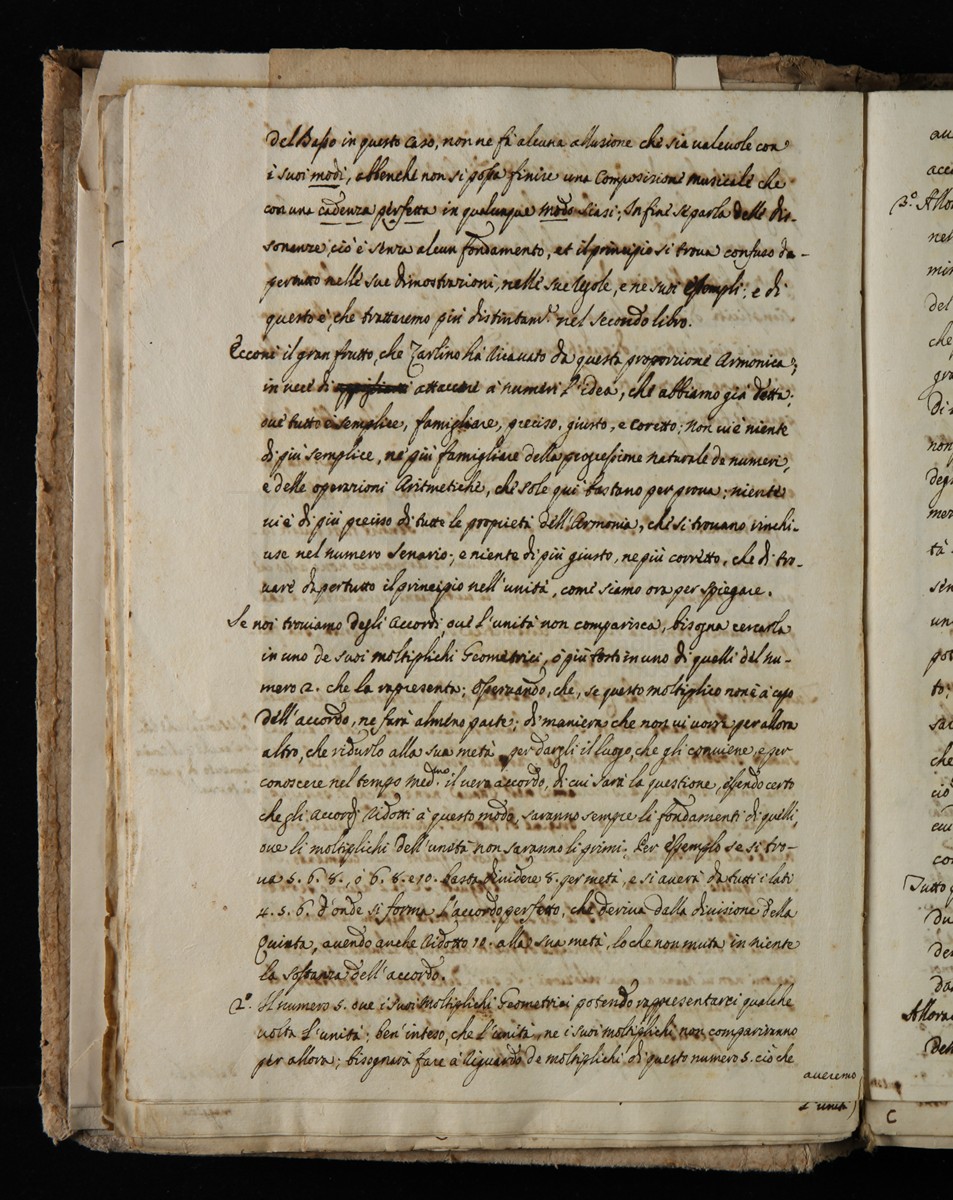 del Basso in questo caso, non ne fà alcuna allusione che sia valevole con
i suoi modi, abbenche non si possa finire una Composizione musicale che
con una cadenza perfetta in qualunque modo siasi; In fine si parla delle dis-
sonanze, ciò è senza alcun fondamento, et il principio si trova confuso da-
pertutto nelle sue dimostrazioni, nelle sue regole, e ne suoi essempli; e di
questo è, che trattaremo più distintam.e nel secondo libro.
Eccone il gran frutto, che Zarlino hà ricavato da questa proporzione Armonica;
in vece di attaccare a numeri l'idea, che abbiamo già detta;
ove tutto è semplice, famigliare, preciso, giusto, e coretto; non vi è niente
di più semplice, ne più famigliare della progressione naturale de numeri,
e delle operazioni Aritmetiche, che sole qui bastano per prova; niente
vi è di più preciso di tutte le proprietà dell'Armonia, che si trovano rinchi-
use nel numero Senario; e niente di più giusto, ne più corretto, che di tro-
vare dapertutto il principio nell'unità, come siamo ora per spiegare.
Se noi troviamo degli Accordi, ove l'unità non comparisca, bisogna cercarla
in uno de suoi moltiplichi Geometrici, ò più tosto in uno di quelli del nu-
mero 2. che la rapresenta; osservando, che, se questo moltiplico non è à capo
dell'accordo, ne farà almeno parte; di maniera che non vi vorrà per allora
altro, che ridurlo alla sua metà per dargli il luogo, che gli conviene, e per
conoscere nel tempo med.mo il vero accordo, di cui sarà la questione, essendo certo
che gli Accordi ridotti à questo modo, saranno sempre li fondamenti di quelli,
ove li moltiplichi dell'unità non saranno li primi. Per essemplo se si tro-
va 5. 6. 8., ò 6. 8. e 10. basta dividere 8. per metà, e si averà da tutti i lati
4. 5. 6. d'onde si forma l'accordo perfetto, che deriva dalla divisione della
Quinta, avendo anche ridotto 10. alla sua metà, lo che non muta in niente
la sostanza dell'accordo.
2.º Il numero 5. ove i suoi moltiplichi Geometrici potendo rappresentarci qualche
volta l'unità; ben'inteso, che l'unità, ne i suoi moltiplichi non compariranno
per allora; bisognarà fare à riguardo de moltiplichi di questo numero 5. ciò che
averemo
l'unità
3.º Allor
nel
del
che
di
non
mer
tà
un
to;
che
ciò
Tutto
du
de
da
Allora
C